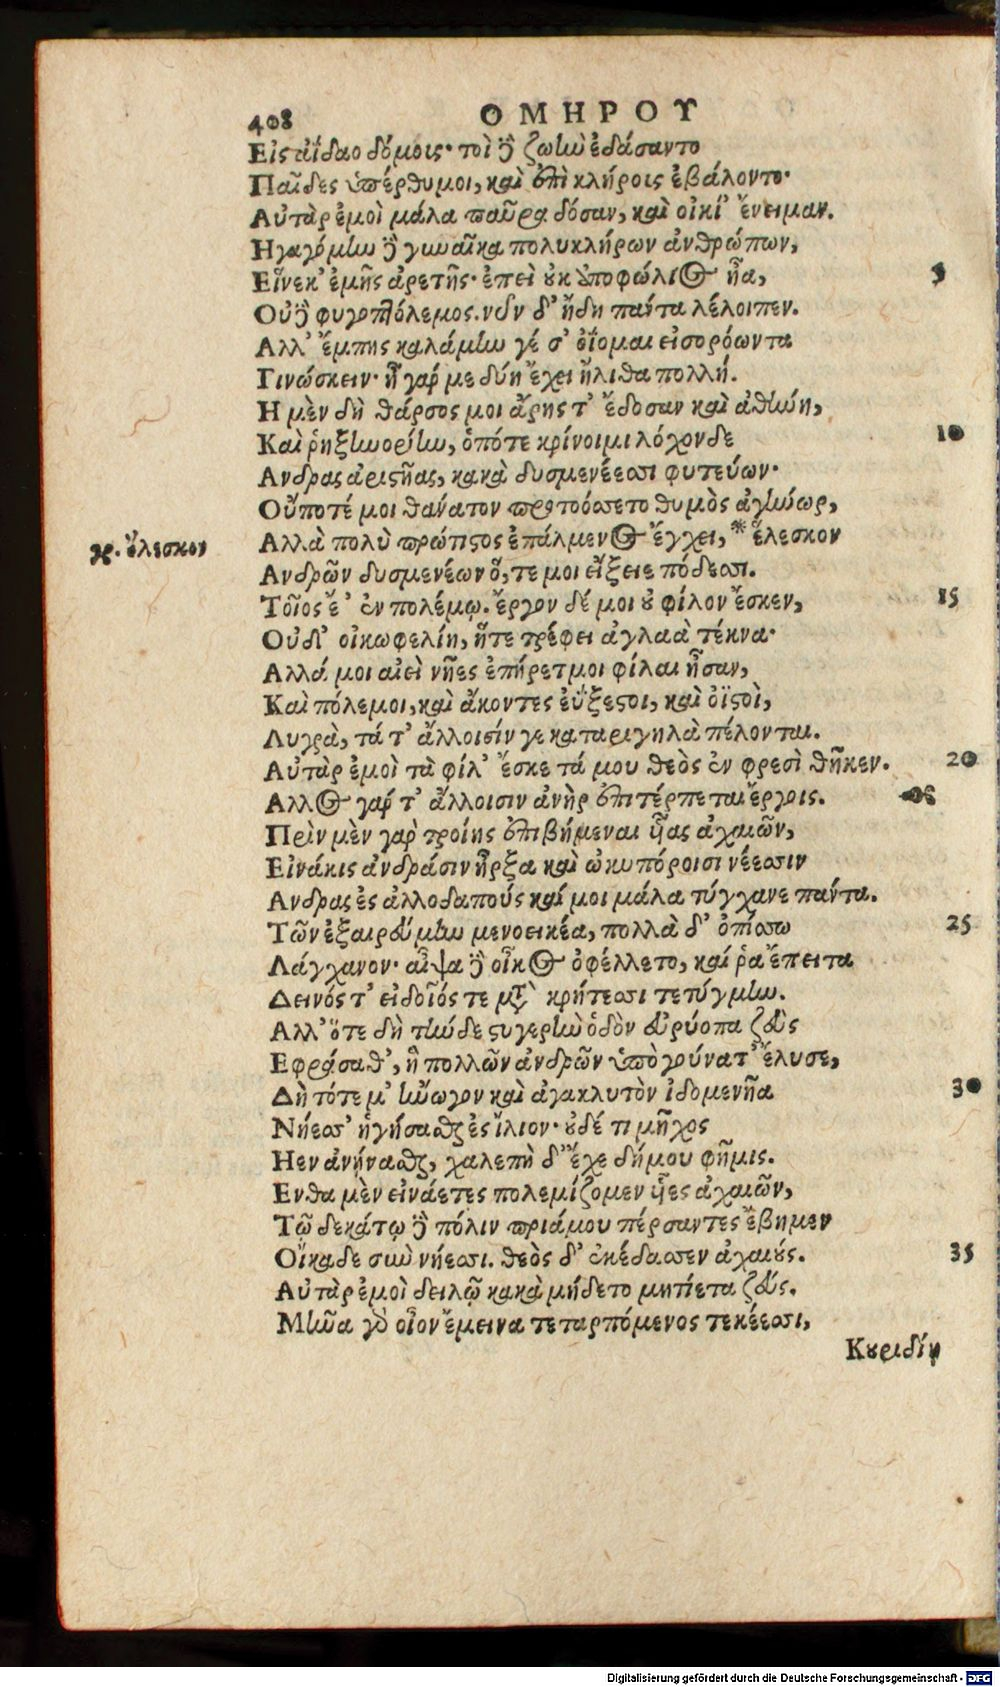 408 ΟΜΗΡΟΥ
Εἰς ἀίδαο δόμοις· τοὶ ϳ ζωὴν ἐδάσαντο
Παῖδες ὑπέρθυμοι, καὶ ἐπὶ κλήροις ἐβάλοντο·
Αὐτὰρ ἐμοὶ μάλα παῦρα δόσαν, καὶ οἰκί' ἔνειμαν.
Ηγαγόμην ϳ γυναῖκα πολυκλήρων ἀνθρώπων,
Εἵνεκ' ἐμῆς ἀρετῆς· ἐπεὶ οὐκ ἀποφώλιος ἦα, 5
Οὐϳ φυγοπτόλεμος. νῦν δ' ἤδη πάντα λέλοιπεν.
Αλλ' ἔμπης καλάμην γέ σ' ὀΐομαι εἰσορόωντα
Γινώσκειν· ἦ γάρ με δύη ἔχει ἤλιθα πολλή.
Η μὲν δὴ θάρσος μοι ἄρης τ' ἔδοσαν καὶ ἀθήνη,
Καὶ ῥηξηνορίην, ὁπότε κρίνοιμι λόχονδε 10
Ανδρας ἀριστῆας, κακὰ δυσμενέεσσι φυτεύων·
Οὔποτέ μοι θάνατον προτιόσσετο θυμὸς ἀγήνωρ,
Αλλὰ πολὺ πρώτιστος ἐπάλμενος ἔγχει, * ἕλεσκον
γρ. ὄλεσκον
Ανδρῶν δυσμενέων ὅ, τε μοι εἴξειε πόδεσσι.
Τοῖος ἔ' ἐν πολέμῳ. ἔργον δέ μοι οὐ φίλον ἔσκεν, 15
Οὐδ' οἰκωφελίη, ἥτε τρέφει ἀγλαὰ τέκνα·
Αλλά μοι αἰεὶ νῆες ἐπήρετμοι φίλαι ἦσαν,
Καὶ πόλεμοι, καὶ ἄκοντες ἐΰξεστοι, καὶ ὀϊστοὶ,
Λυγρὰ, τά τ' ἄλλοισίν γε καταριγηλὰ πέλονται.
Αὐτὰρ ἐμοὶ τὰ φίλ' ἔσκε τά μου θεὸς ἐν φρεσὶ θῆκεν. 20
Αλλος γάρ τ' ἄλλοισιν ἀνὴρ ἐπιτέρπεται ἔργοις.
Πρὶν μὲν γὰρ τροίης ἐπιβήμεναι υἷας ἀχαιῶν,
Εἰνάκις ἀνδράσιν ἦρξα καὶ ὠκυπόροισι νέεσσιν
Ανδρας ἐς ἀλλοδαποὺς καί μοι μάλα τύγχανε πάντα.
Τῶν ἐξαιρεύμην μενοεικέα, πολλὰ δ' ὀπίσσω 25
Λάγχανον· αἶψα ϳ οἶκος ὀφέλλετο, καί ῥα ἔπειτα
Δεινός τ' αἰδοῖός τε μετὰ κρήτεσσι τετύγμην.
Αλλ' ὅτε δὴ τήνδε στυγερὴν ὁδὸν εὐρύοπα ζεὺς
Εφράσαθ', ἣ πολλῶν ἀνδρῶν ὑπὸ γούνατ' ἔλυσε,
Δὴ τότε μ' ἤνωγον καὶ ἀγακλυτὸν ἰδομενῆα 30
Νήεσσ' ἡγήσασθαι ἐς ἴλιον· οὐδέ τι μῆχος
Ηεν ἀνήνασθαι, χαλεπὴ δ' ἔχε δήμου φῆμις.
Ενθα μὲν εἰνάετες πολεμίζομεν υἷες ἀχαιῶν,
Τῷ δεκάτῳ ϳ πόλιν πριάμου πέρσαντες ἔβημεν
Οἴκαδε σὺν νήεσσι. θεὸς δ' ἐκέδασσεν ἀχαιούς. 35
Αὐτὰρ ἐμοὶ δειλῷ κακὰ μήδετο μητίετα ζεύς.
Μῆνα γὸ οἶον ἔμεινα τεταρπόμενος τεκέεσσι,
Κουριδίη
Digitalisierung gefördert durch die Deutsche Forschungsgemeinschaft - DFG